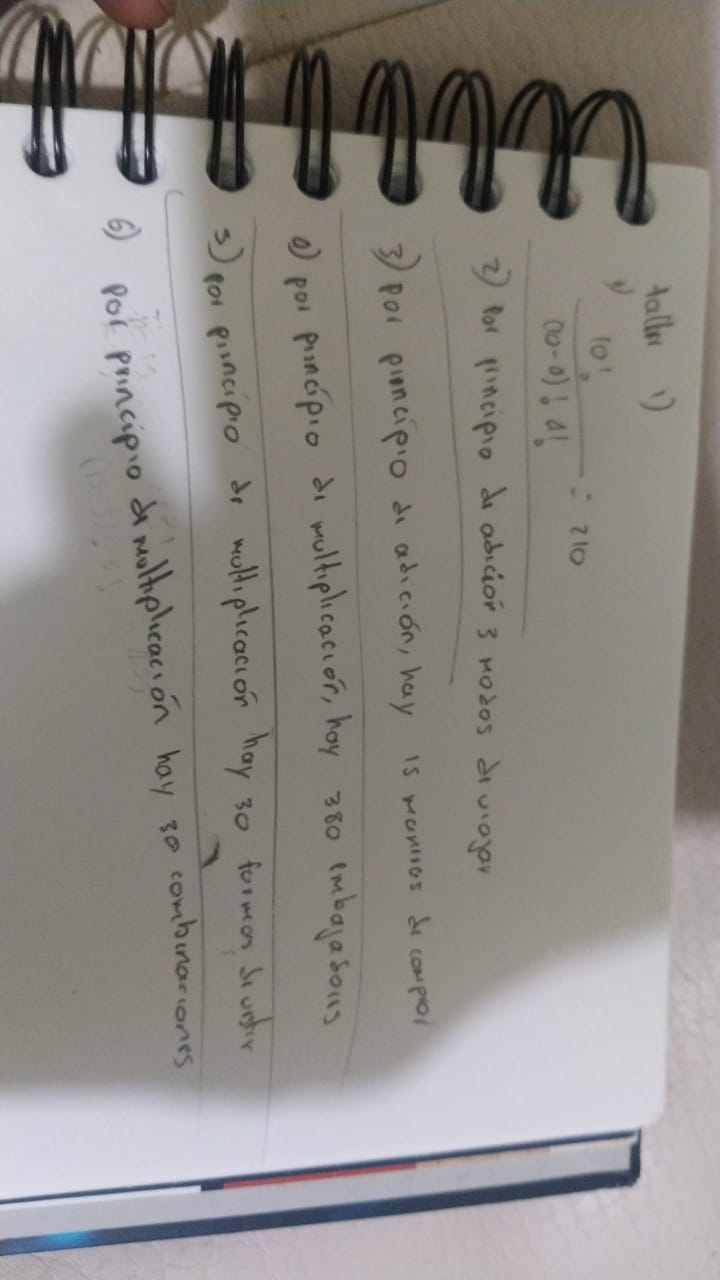 taller 1)
1)
10!
(10-4)! 4! = 210
2) Por principio de adición 3 modos de viajar
3) por principio de adición, hay 15 maneras de compra
4) por principio de multiplicación, hay 380 embajadores
5) por principio de multiplicación hay 30 formas de vestir
6) por principio de multiplicación hay 30 combinaciones